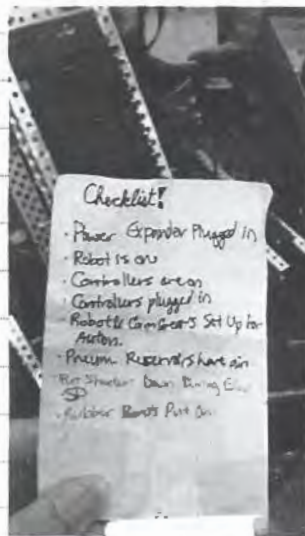 Checklist!
· Power Expander Plugged in
· Robot is on
· Controllers are on
· Controllers plugged in
· Robot & Set Up for
Auton.
· Pneum. Reservoirs have air
Down During
· Rubber Bands Put On